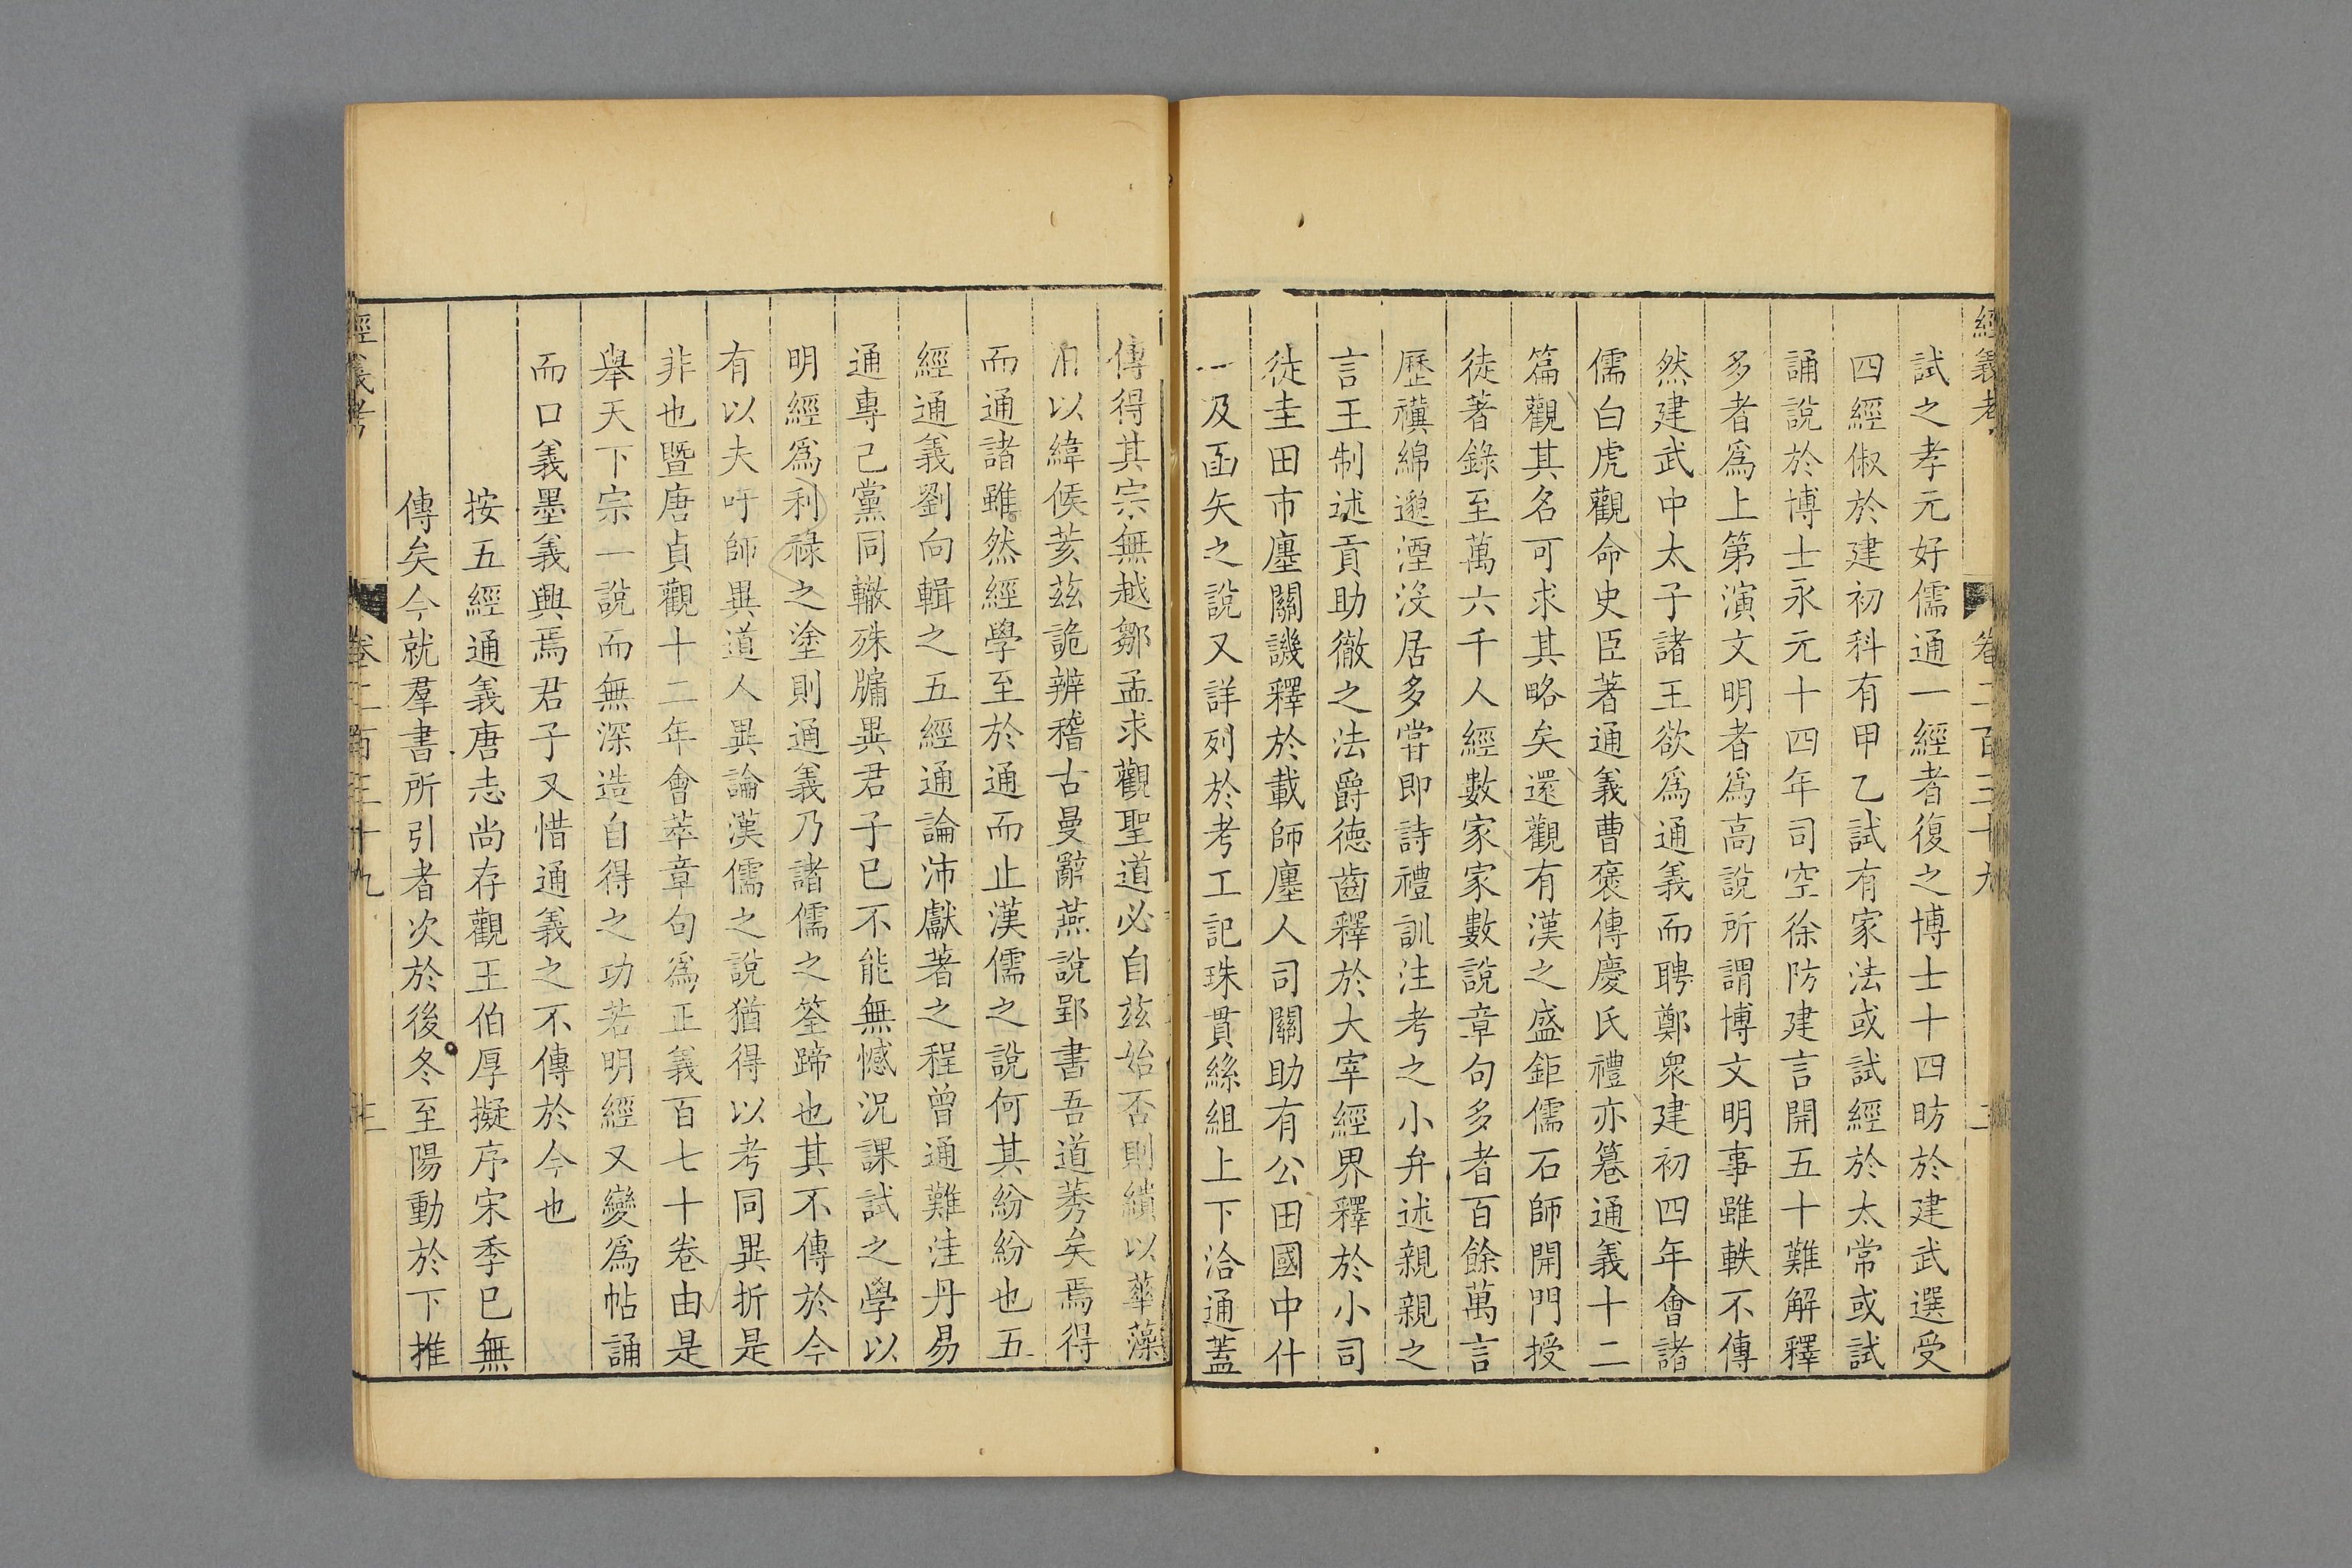 經義考
卷二百三十九
二
試之孝元好儒通一經者復之博士十四昉於建武選受
四經俶於建初科有甲乙試有家法或試經於太常或試
誦說於博士永元十四年司空徐防建言開五十難解釋
多者爲上第演文明者爲高說所謂博文明事雖軼不傳
然建武中太子諸王欲爲通義而聘鄭衆建初四年會諸
儒白虎觀命史臣著通義曹褒傳慶氏禮亦篹通義十二
篇觀其名可求其略矣還觀有漢之盛鉅儒石師開門授
徒著錄至萬六千人經數家家數說章句多者百餘萬言
歷禩綿邈湮沒居多嘗卽詩禮訓注考之小弁述親親之
言王制述貢助徹之法爵徳齒釋於大宰經界釋於小司
徒圭田市廛關譏釋於載師廛人司關助有公田國中什
一及函矢之說又詳列於考工記珠貫絲組上下洽通蓋
傳得其宗無越鄒孟求觀聖道必自茲始否則繢以華藻
汩以緯候荄茲詭辨稽古曼辭燕說郢書吾道莠矣焉得
而通諸雖然經學至於通而止漢儒之說何其紛紛也五
經通義劉向輯之五經通論沛獻著之程曾通難洼丹易
通專己黨同轍殊牖異君子已不能無憾況課試之學以
明經爲利祿之塗則通義乃諸儒之筌蹄也其不傳於今
有以夫吁師異道人異論漢儒之說猶得以考同異折是
非也曁唐貞觀十二年會萃章句爲正義百七十卷由是
舉天下宗一說而無深造自得之功若明經又變爲帖誦
而口義墨義興焉君子又惜通義之不傳於今也
按五經通義唐志尚存觀王伯厚擬序宋季已無
傳矣今就羣書所引者次於後冬至陽動於下推
經義考
卷二百三十九
三